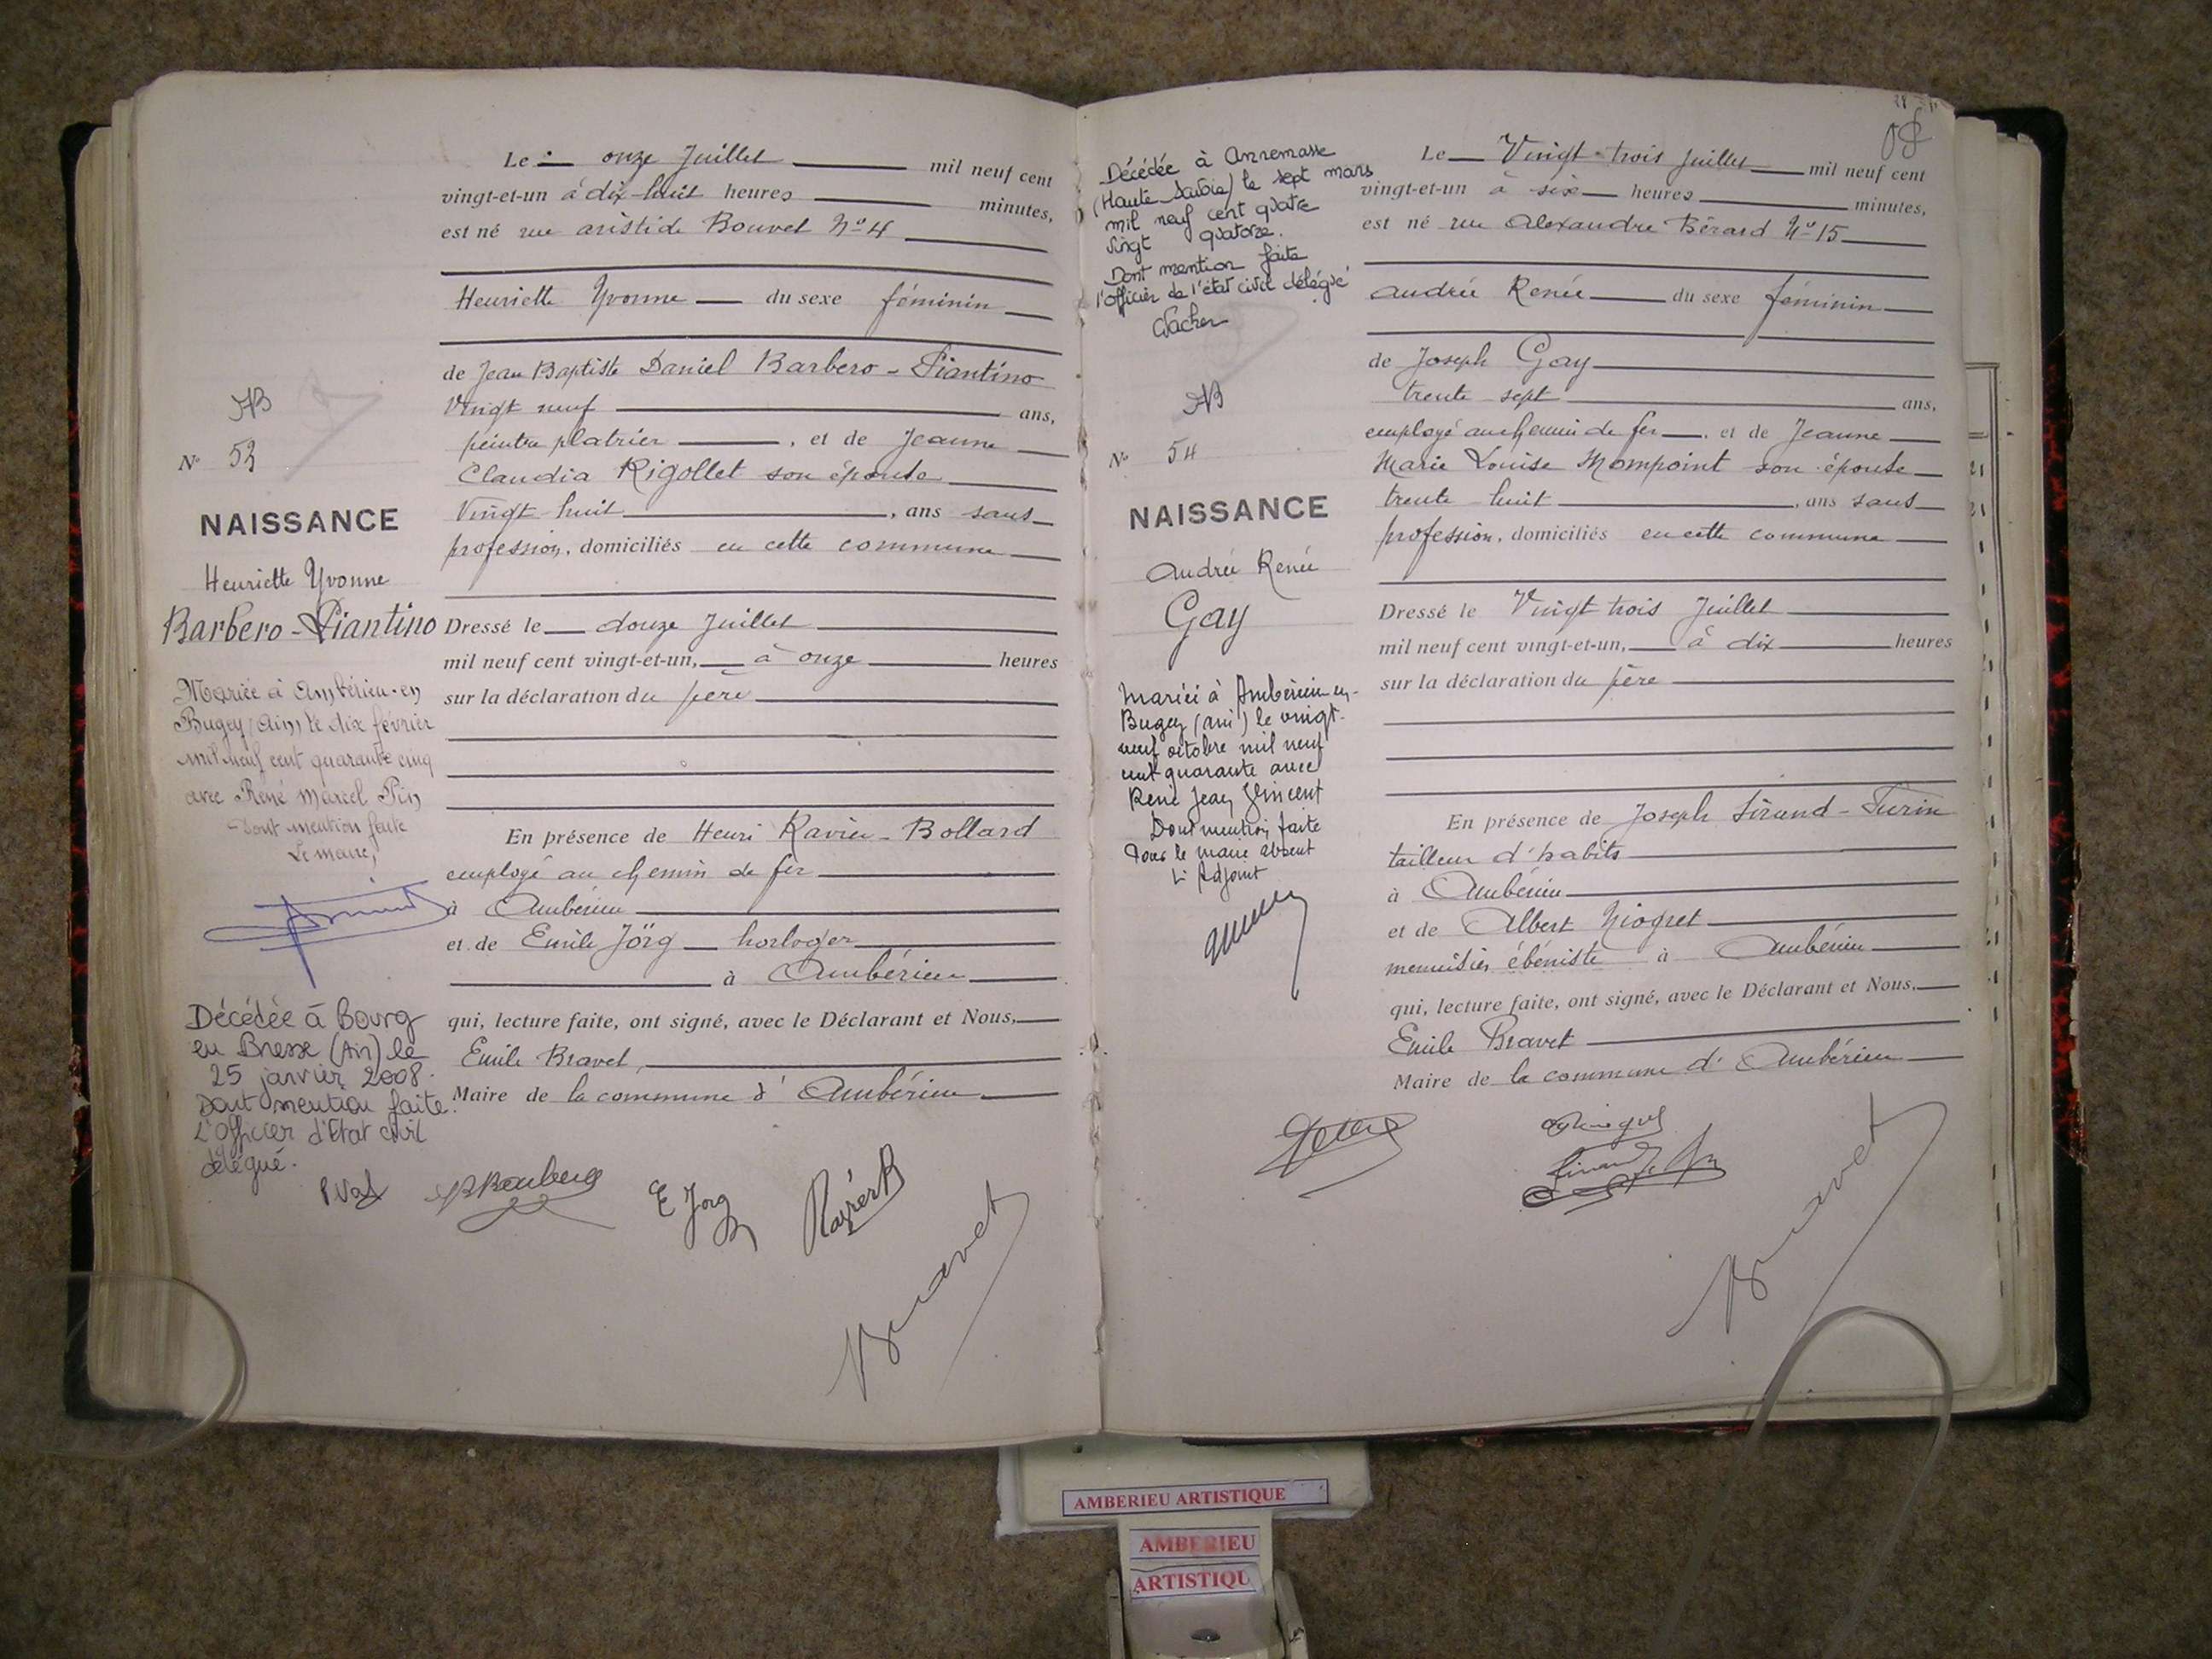 AB
N° 53
NAISSANCE
Henriette Yvonne
Barbero-Piantino
Mariée à Ambérieu-en
Bugey (Ain) le dix février
mil neuf cent quarante cinq
avec René Marcel Pin
Dont mention faite
Le maire,
Décédée à Bourg
en Bresse (Ain) le
25 janvier 2008.
Dont mention faite.
L'Officier d'Etat civil
délégué.
Le onze Juillet mil neuf cent
vingt-et-un à dix-huit heures minutes,
est né rue aristide Bouvet N° 4
Henriette Yvonne du sexe féminin
de Jean Baptiste Daniel Barbero-Piantino
Vingt neuf ans,
peintre platrier, et de Jeanne
Claudia Rigollet son épouse
Vingt huit, ans sans
profession, domiciliés en cette commune
Dressé le douze Juillet
mil neuf cent vingt-et-un, à onze heures
sur la déclaration du père
En présence de Henri Ravier-Bollard
employé au chemin de fer
à Ambérieu
et de Emile Jörg horloger
à Ambérieu
qui, lecture faite, ont signé, avec le Déclarant et Nous,
Emile Bravet,
Maire de la commune d'Ambérieu
E Jörg
Ravier B
Bravet
Décédée à Annemasse
(Haute Savoie) le sept mars
mil neuf cent quatre
vingt quatorze.
Dont mention faite
l'officier de l'état civil délégué
AB
N° 54
NAISSANCE
Andrée Renée
Gay
Mariée à Ambérieu en-
Bugey (Ain) le vingt-
neuf octobre mil neuf
cent quarante avec
René Jean Vincent
Dont mention faite
Pour le maire absent
L'Adjoint
Le Vingt-trois Juillet mil neuf cent
vingt-et-un à six heures minutes,
est né rue Alexandre Bérard N° 15
Andrée Renée du sexe féminin
de Joseph Gay
trente sept ans,
employé au chemin de fer, et de Jeanne
Marie Louise Mompoint son épouse
trente huit, ans sans
profession, domiciliés en cette commune
Dressé le Vingt trois Juillet
mil neuf cent vingt-et-un, à dix heures
sur la déclaration du père
En présence de Joseph Sirand-Turin
tailleur d'habits
à Ambérieu
et de Albert Niogret
menuisier ébéniste à Ambérieu
qui, lecture faite, ont signé, avec le Déclarant et Nous,
Emile Bravet
Maire de la commune d'Ambérieu
Bravet
AMBERIEU ARTISTIQUE
AMBERIEU
ARTISTIQU